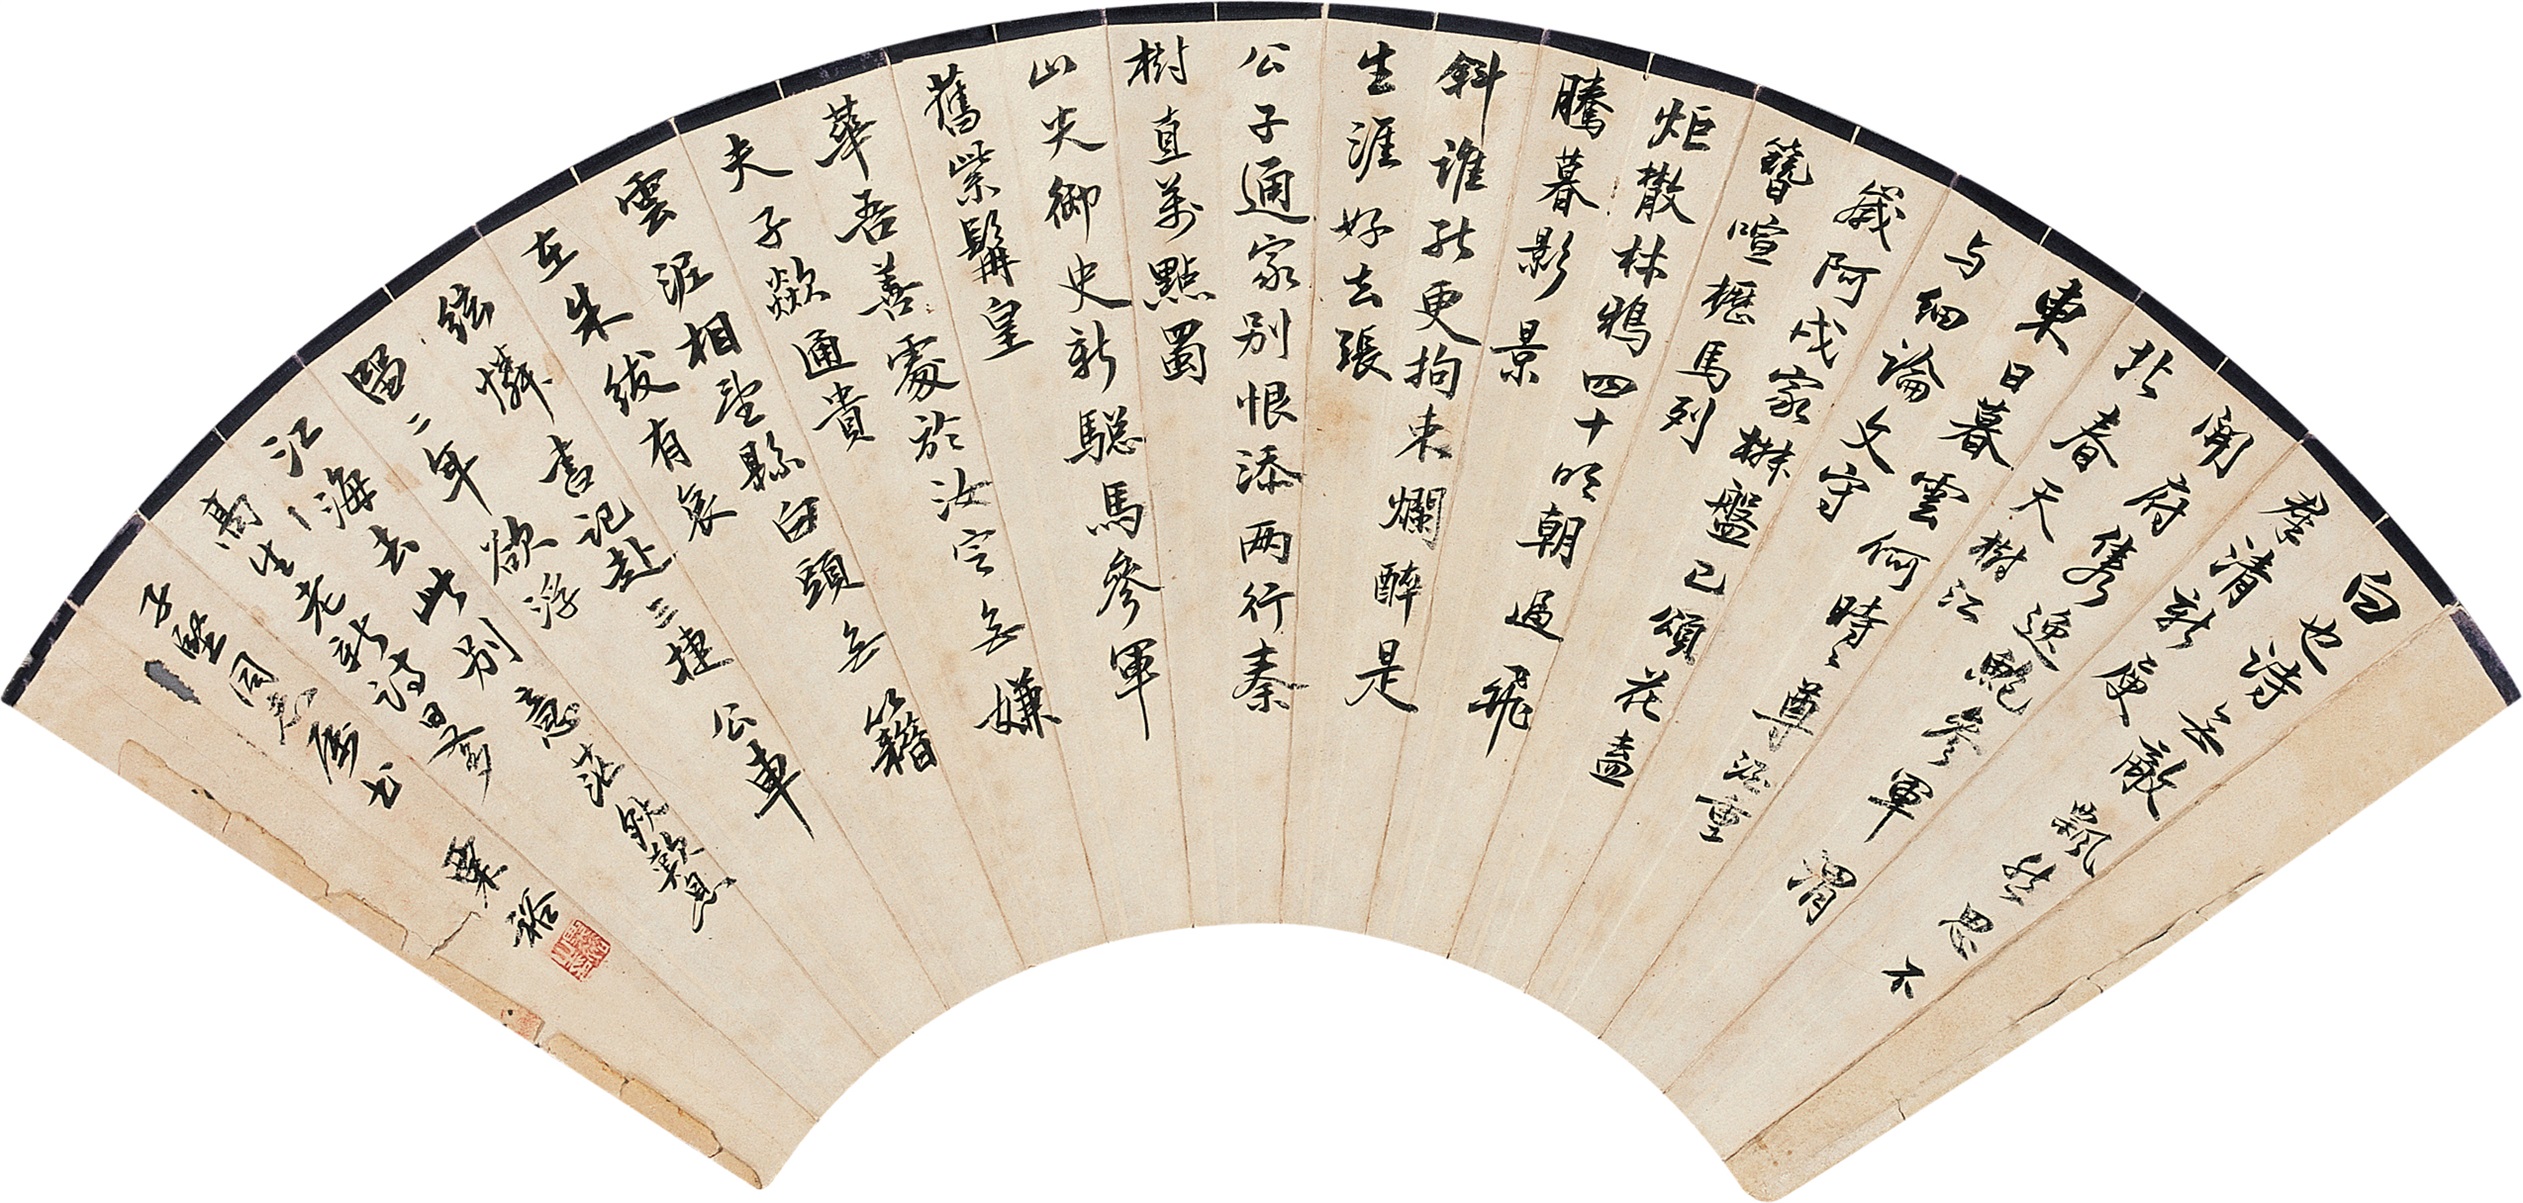 白也诗無敵飄然思不
羣清新庾
開府雋逸鮑參軍渭
北春天樹江
東日暮雲何時一尊酒重
与細論文守
歲阿戎家椒盤已頌花盍
簪喧櫪馬列
炬散林鴉四十明朝過飛
騰暮影景
斜誰能更拘束爛醉是
生涯好去張
公子通家别恨添两行秦
樹直萬點蜀
山尖御史新驄馬參軍
舊紫髯皇
華吾善處於汝定無嫌
夫子欻通貴
雲泥相望縣白頭無籍
在朱紱有哀
絃憐書記赴三捷公車
留二年欲浮
江海去此别意茫然歎息
高生老新诗日又多
子堅同志屬書
裕